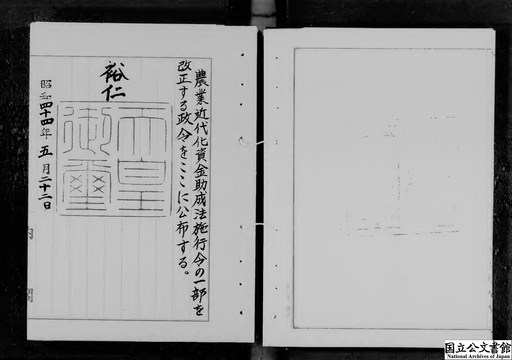 農業近代化資金助成法施行令の一部を
改正する政令をここに公布する。
裕仁
天皇
御璽
昭和四十四年五月二十二日
内閣
国立公文書館
National Archives of Japan